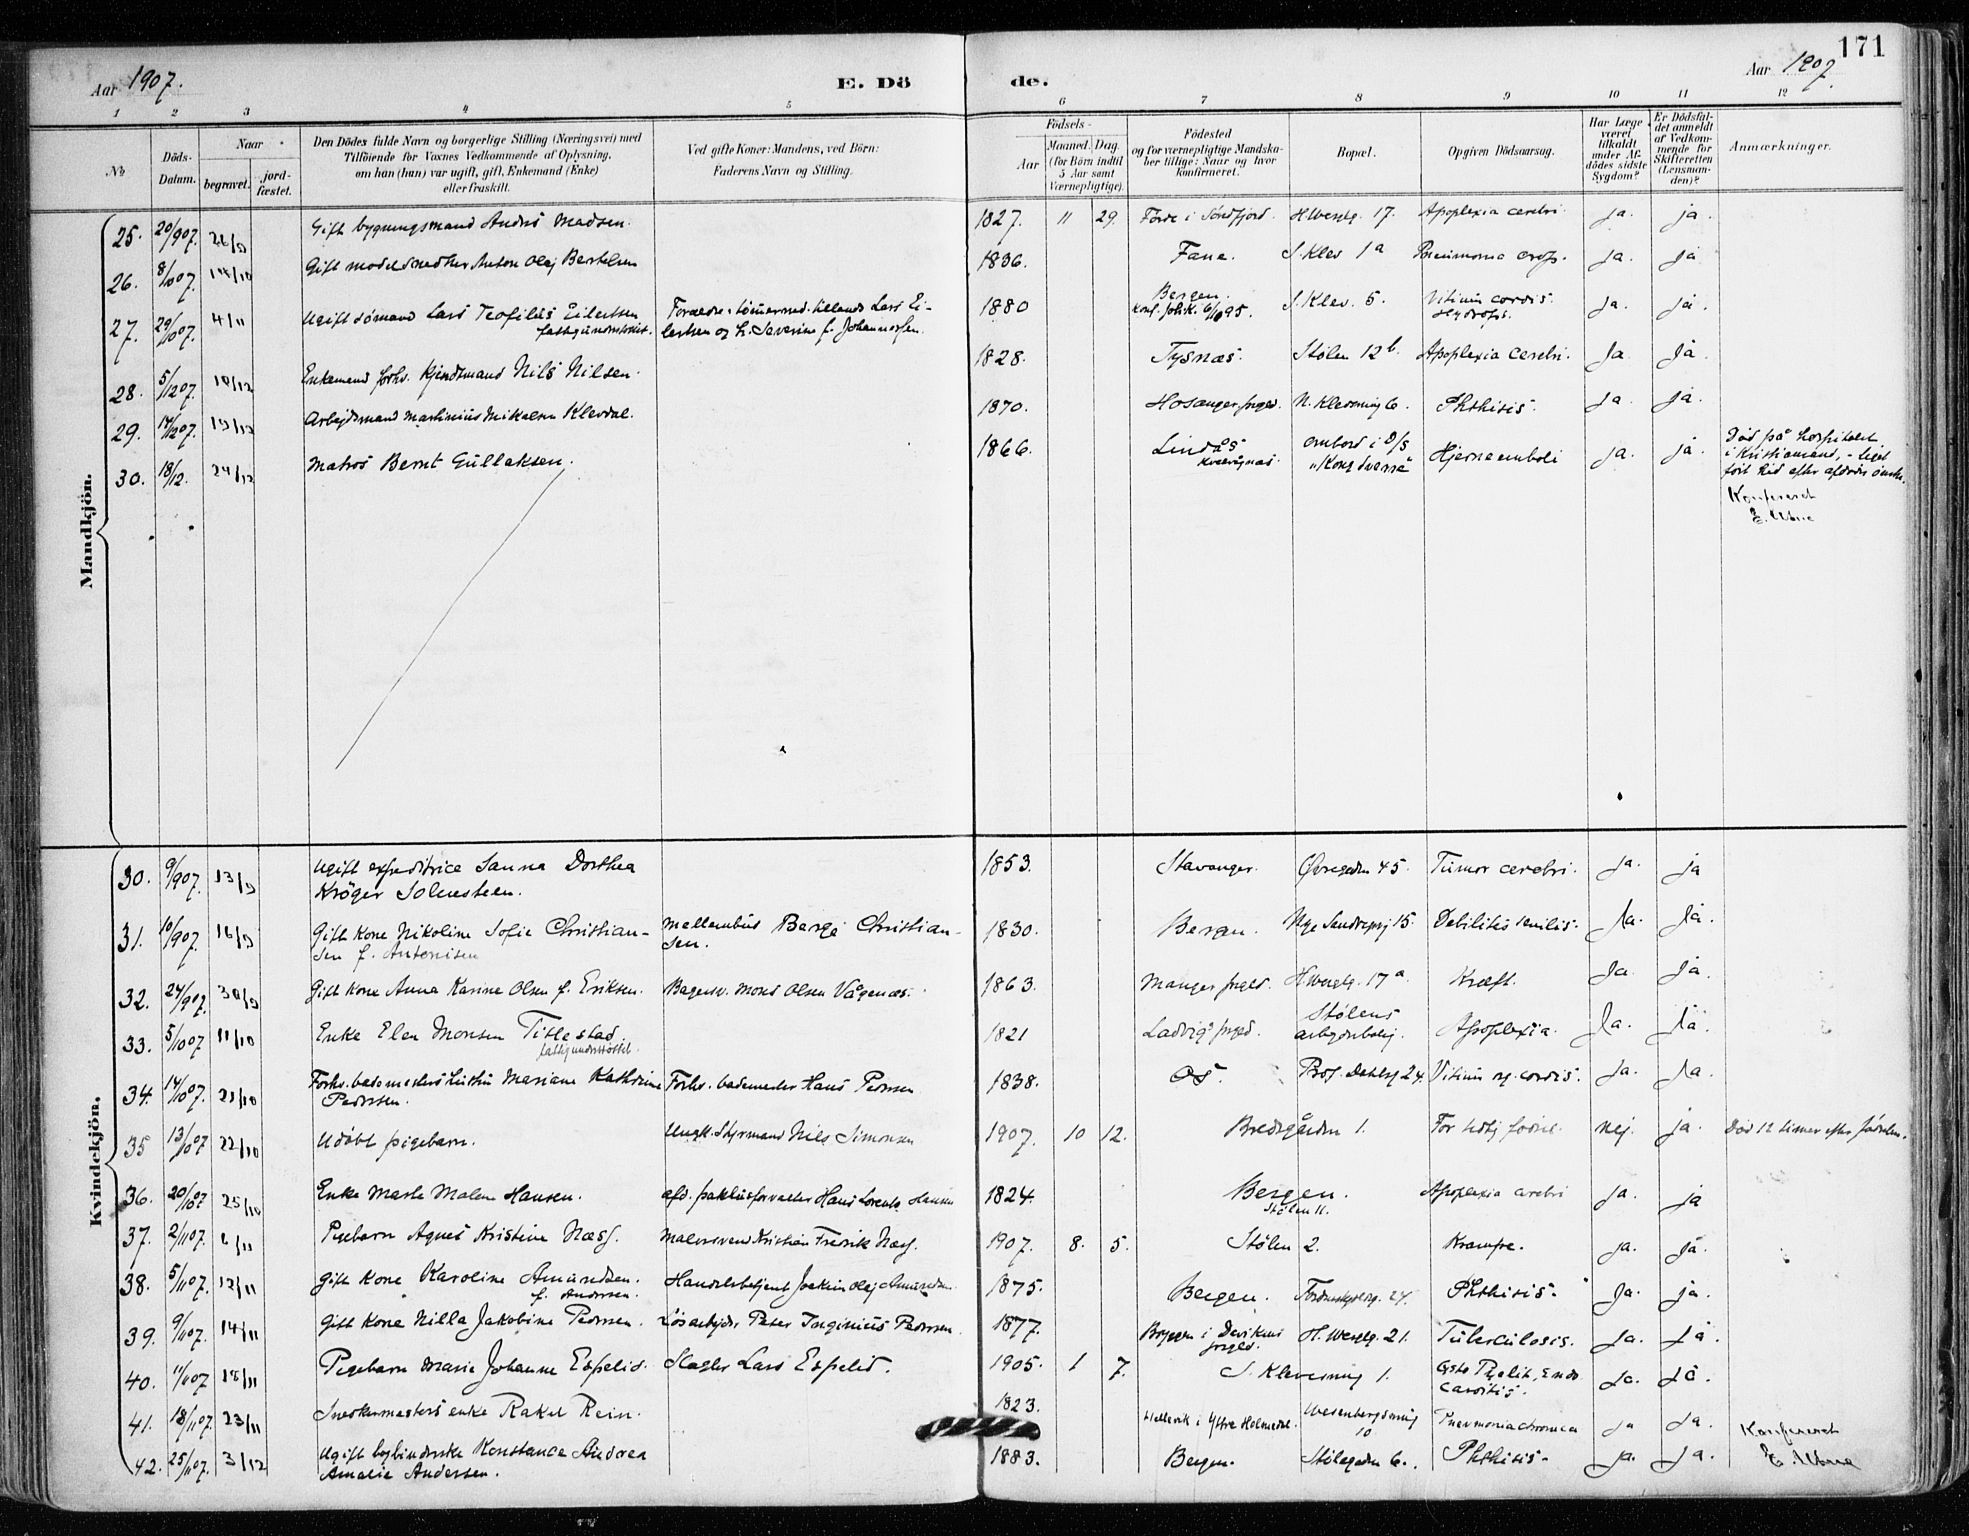 171
Aar 1907. E. Dö de. Aar 1907.
1 2 3 4 5 6 7 8 9 10 11 12
№ Döds-Datum. Naar begravet. jord-fæstet. Den Dödes fulde Navn og borgerlige Stilling (Næringsvei) med Tilföiende for Voxnes Vedkommende af Oplysning, om han (hun) var ugift, gift, Enkemand (Enke) eller fraskilt. Ved gifte Koner: Mandens, ved Börn: Faderens Navn og Stilling. Födsels- Aar Maaned. Dag. (for Börn indtil 5 Aar samt Værnepligtige). Födested og for værnepligtige Mandskaber tillige: Naar og hvor konfirmeret. Bopæl. Opgiven Dödsaarsag. Har Læge været tilkaldt under Afdödes sidste Sygdom? Er Dödsfaldet anmeldt af Vedkommende for Skifteretten (Lensmanden)? Anmærkninger.
Mandkjön.
25. 20/9 07. Gift bygningsmand Anders Madsen. 1827. 11 29. Førde i Søndfjord. H. Weselg. 17. Apoplexia cerebri. ja. ja.
26. 8/10 07. 14/10 Gift modelsnedker Anton Olaj Bertelsen 1836. Fane. S. Klev 1a Pneumonia crup. ja. ja
27. 29/10 07. 4/11 Ugift sømand Lars Teofilus Eilertsen Forældre: tømmermd. Lars Ei- 1880 Bergen. S. Klev. 5. Vitium cordis. ja. ja
lertsen og h. Severine f. Johannesen. Konf. Joh.K. 95. Hydrops.
28. 5/12 07. 10/12 Enkemand forhv. Nils Nilsen. 1828. Tysnæs. Stølen 12b. Apoplexia cerebri. Ja. Ja.
29. 14/12 07. 19/12 Arbejdsmand Martinius Mikalsen Klevdal. 1870. Hosanger prgld. N. Klevesmug 6. Phthisis. ja. ja.
30. 18/12. 24/12 Matros Bernt Gullaksen. 1866. Lindås ombord i D/S "Kong Sverre" Hjerneemboli ja. ja. Død på hospitalet
i Kristiansand, - liget
ført hid efter afdødes ønske.
Konfereret
Kvindekjön.
30. 9/9 07. 13/9 Ugift expeditrice Sanna Dorthea 1853. Stavanger. Øvregaden 45. Tumor cerebri. ja. ja
Krøger Solensteen.
31. 10/9 07. 16/9 Gift Kone Nikoline Sofie Christian- Børge Christian- 1830. Bergen. Nye Sandvigsvej 15. Debilitas senilis. Ja. Ja.
sen f. Antonisen sen.
32. 24/9 07. 30/9 Gift Kone Anna Karine Olsen f. Eriksen. Bagersv. Mons Olsen Vågenæs. 1863. Manger prgld. H. Weselg. 17a Kræft. Ja. Ja.
33. 5/10 07. 11/10 Enke Elen Monsen Titlestad 1821 Ladvigs prgld. Stølens Apoplexia. Ja. Ja
fattigunderstøttet. arbejderbolig.
34. 14/10 07. 21/10 Forhv. bademesters hustru Mariane Kathrine Forhv. bademester Hans Pedersen 1838. Os. Prof. Dahlsg 24. Vitium org. cordis. ja. Ja.
Pedersen.
35 13/10 07 22/10 Udøbt pigebarn. Ungk. Styrmand Nils Simonsen 1907. 10 12. Bredsgården 1. For tidlig fødsel. nej. ja. Død 12 timer efter fødselen.
36. 20/10 07 25/10 Enke Marte Malene Hansen. afd. pakhusforvalter Hans Lorentz Hansen 1824. Bergen. Apoplexia cerebri ja. ja
Stølen 11.
37. 2/11 07. 6/11 Pigebarn Agnes Kristine Næss. Malersvend Kristian Fredrik Næss. 1907. 8. 5. Stølen 2. Krampe. ja. ja.
38. 5/11 07. 12/11 Gift Kone Karoline Amundsen. Handelsbetjent Joakim Olaj Amundsen 1875. Bergen. 24. Phthisis. Ja. ja.
f. Andersen.
39. 9/11 07. 14/11 Gift Kone Nilla Jakobine Pedersen. Løsarbejder Peter Inginius Pedersen. 1877. H. Weselg. 21. Tuberculosis. Ja. Ja.
40. 11/11 07 18/11 Pigebarn Marie Johanne Espelid. Slagter Lars Espelid. 1905. 1 7. S. Klevesmug 1. Cysto Pyelit, Endo- Ja. Ja.
carditis.
41. 18/11 07. 23/11 Snedkermesters enke Rakel Rein. 1823. i Ytre Holmedal. Wesenbergsmug 10 Pneumonia chronica ja Ja.
42. 25/11 07. 3/12 Ugift bogbinderske Konstance Andrea 1883. Bergen. Stølegaden 6. Phthisis. ja. ja. Konfereret
Amalie Andersen.